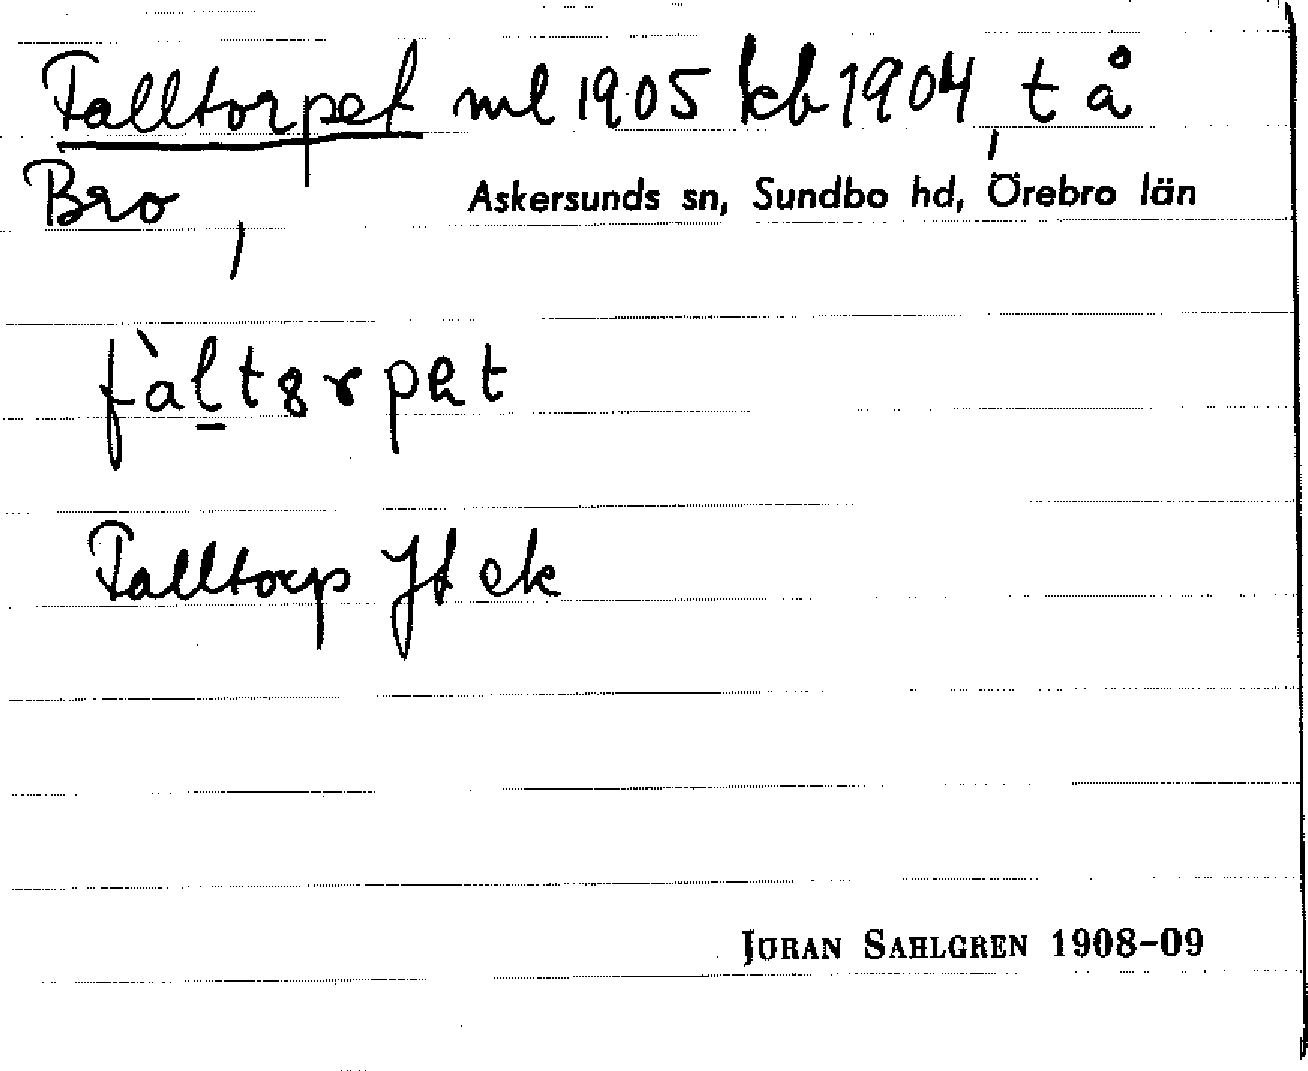 Falltorpet ml 1905 kb 1904, t å
Bro, Askersunds sn, Sundbo hd, Örebro län
fàltɜrpet
Falltorp Jd ek
JÖRAN SAHLGREN 1908-09